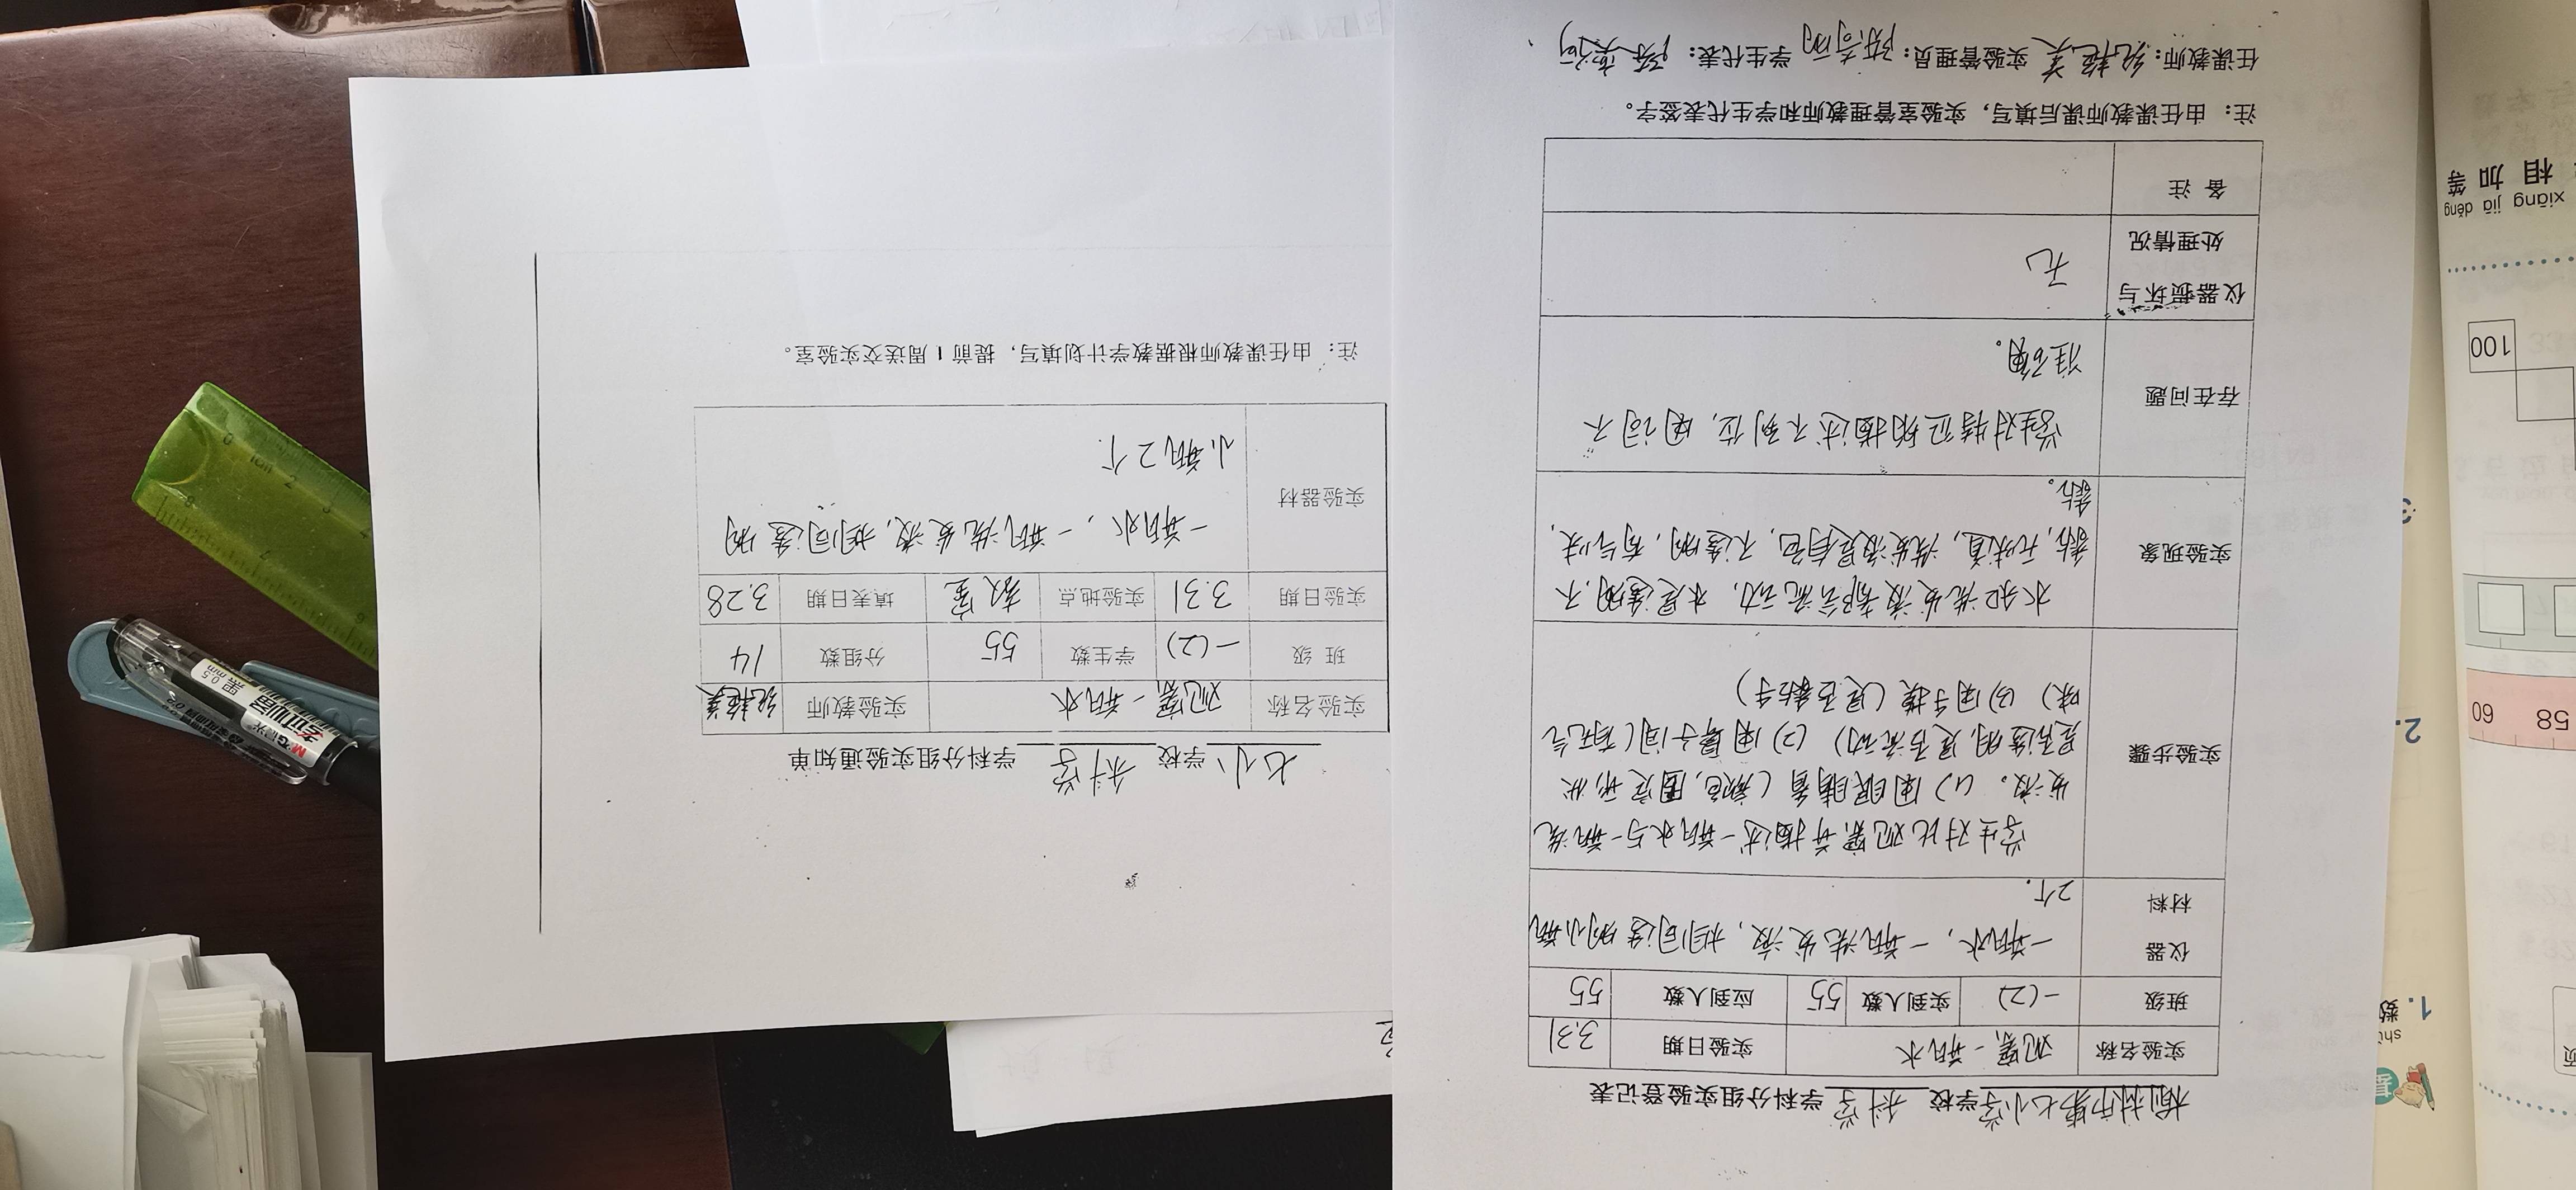 七小 学校 科学 学科分组实验通知单
实验名称 观察一瓶水 实验教师
班 级 一(2) 学生数 55 分组数 14
实验日期 3.31 实验地点 教室 填表日期 3.28
实验器材 一瓶水，一瓶洗发液，相同透明
小瓶2个
注：由任课教师根据教学计划填写，提前1周送交实验室。
第七小学 学校 科学 学科分组实验登记表
实验名称 观察一瓶水 实验日期 3.31
班级 一(2) 实到人数 55 应到人数 55
仪器材料 一瓶水，一瓶洗发液，相同透明小瓶
2个.
实验步骤 学生对比观察并描述一瓶水与一瓶洗
发液。(1)用眼睛看(颜色,固定形状
是否透明,是否流动) (2)用鼻子闻(有无气
味) (3)用手摸(是否黏手)
实验现象 水和洗发液都会流动，水是透明,不
黏,无味道，洗发液是白色，不透明，有气味，
黏。
存在问题 学生对特征的描述不到位，用词不
准确。
仪器损坏与处理情况 无
备 注
注：由任课教师课后填写，实验室管理教师和学生代表签字。
任课教师： 实验管理员： 学生代表：
M&G
黑 0.5mm
xiāng jiā děng
相 加 等
100
58 60
3.
2.
1. 数
shǔ